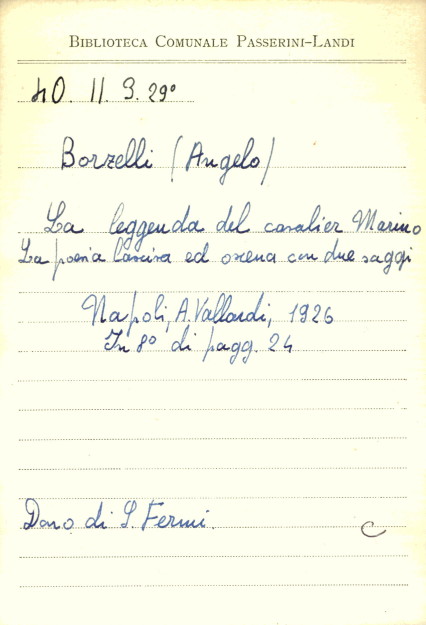 BIBLIOTECA COMUNALE PASSERINI-LANDI
40. II. 9. 29°
Borzelli (Angelo)
La leggenda del cavalier Marino
La poesia lasciva ed oscena con due saggi
Napoli, A. Vallardi, 1926
In 8° di pagg. 24
Dono di S. Fermi.
C